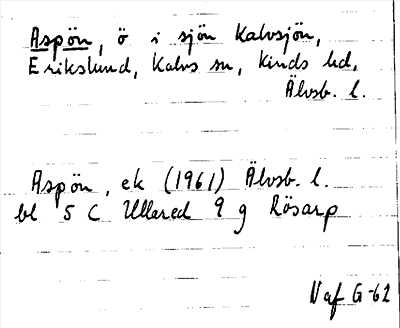 Aspön, ö i sjön Kalvsjön,
Erikslund, Kalvs sn, Kinds hd,
Älvsb. l.
Aspön, ek (1961) Älvsb. l.
bl 5 C Ullared 9 g Rösarp
Naf G-62